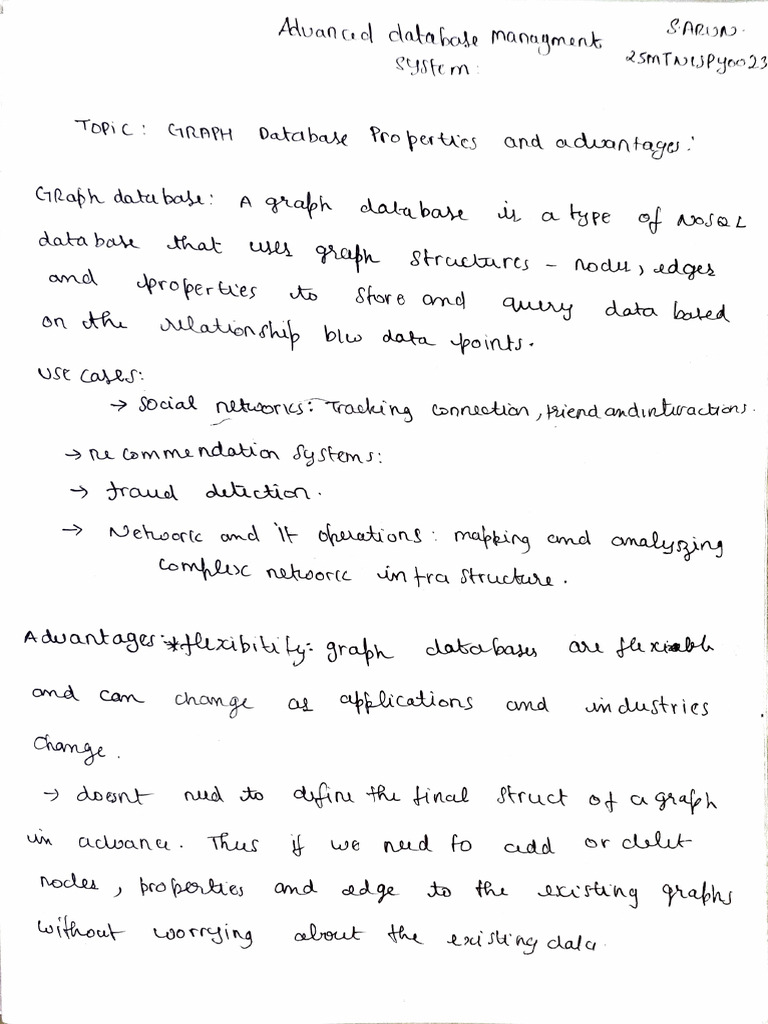 Advanced database managment
system:
S. ARUN.
TOPIC: GRAPH Database Properties and advantages:
GRaph database: A graph database is a type of NOSQL
database that uses graph structures - nodes, edges
and properties to store and query data based
on the relationship b/w data points.
use cases:
→ social networks: Tracking connection, friend and interactions.
→ recommendation systems:
→ fraud detection.
→ Network and it operations: mapping and analyszing
complex network infra structure.
Advantages: * flexibility: graph databases are flexiable
and can change as applications and industries
change.
→ doesnt need to define the final struct of a graph
in advance. Thus if we need to add or delet
nodes, properties and edge to the existing graphs
without worrying about the existing data.